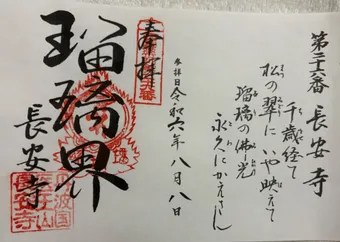 第二十六番 長安寺
千歳経て
松の翠にいや映えて
瑠璃の佛光
永久にかえさん
参拝日 令和六年八月八日
奉拝
瑠璃界
長安寺
丹波国
長安寺